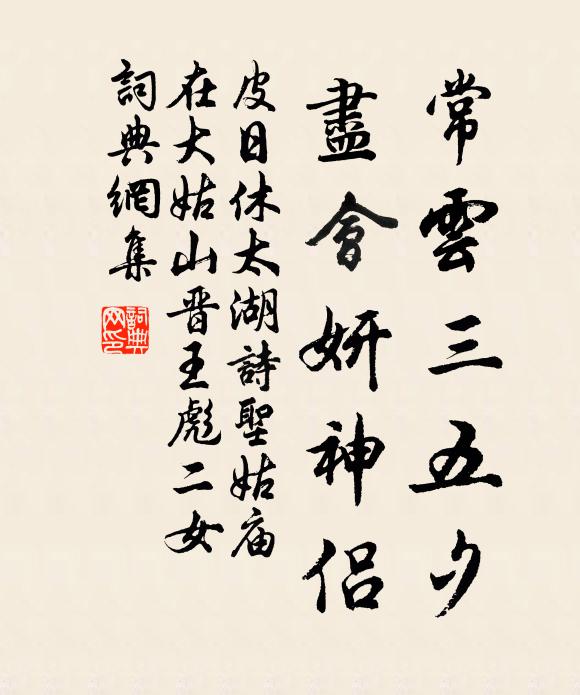 常雲三五夕
盡會妍神侶
皮日休太湖詩聖姑庙
在大姑山晋王彪二女
詞典網集
詞典网印